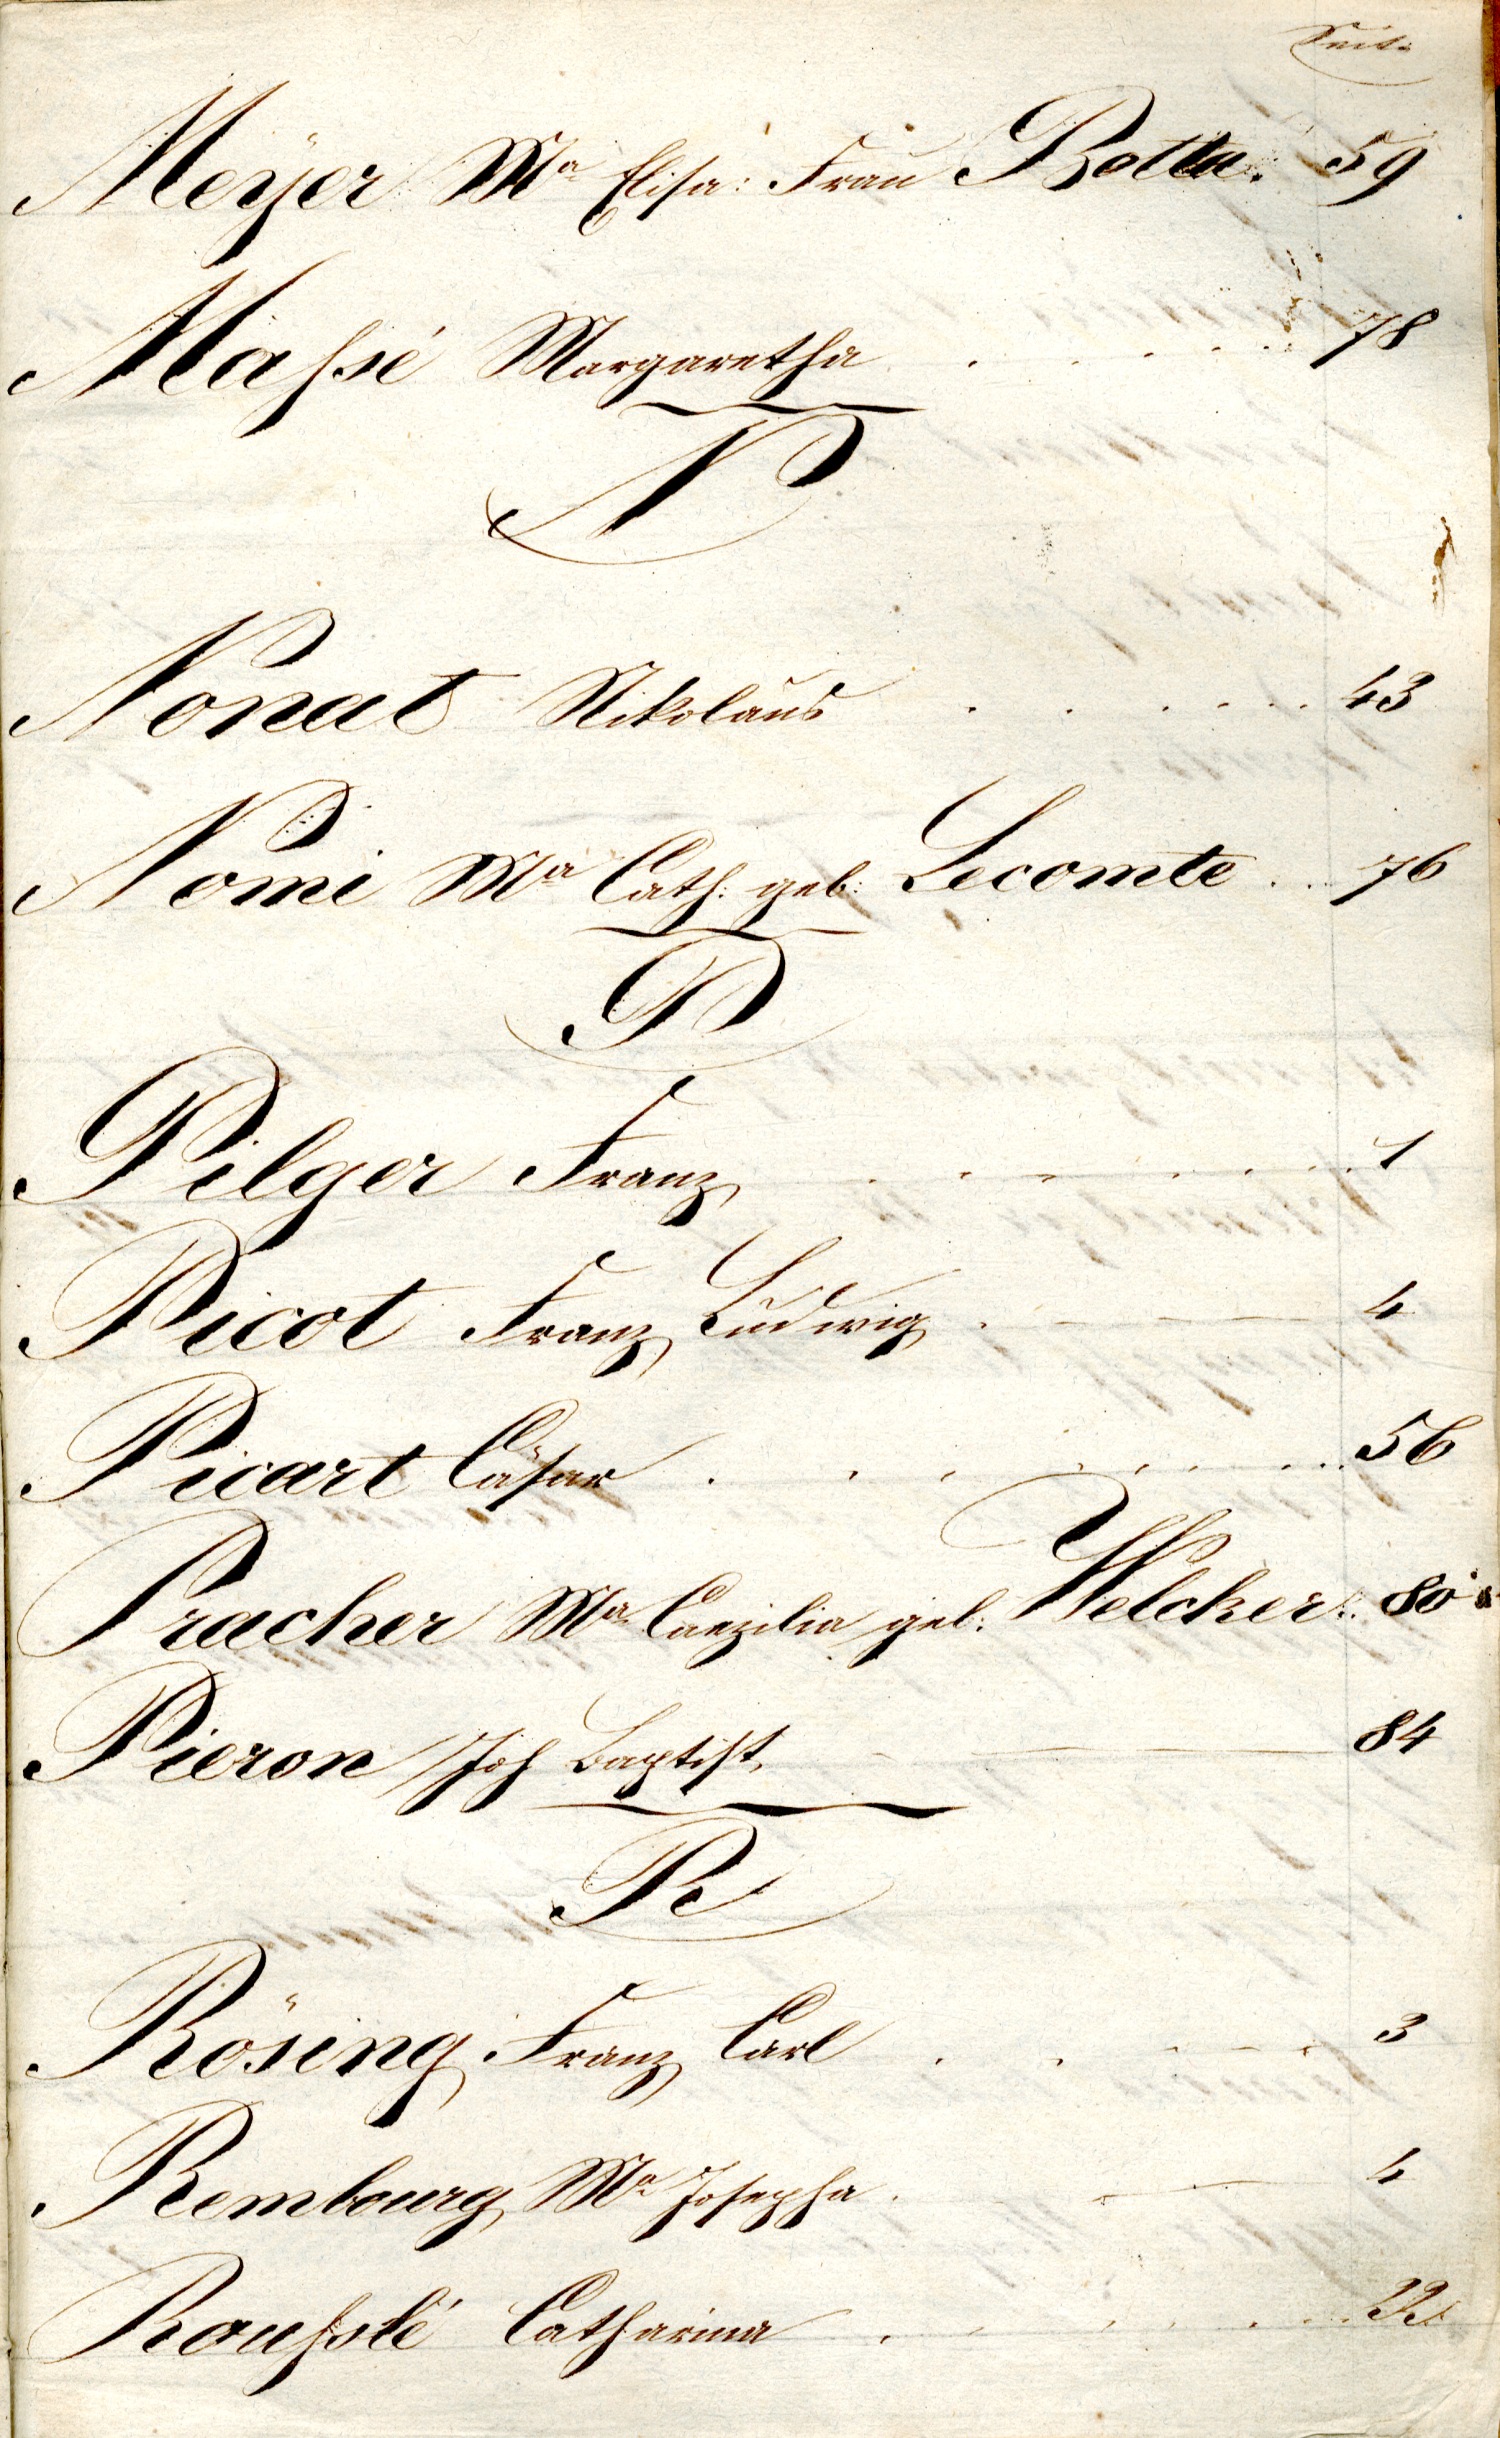 Seite
Meÿer Ma Elisa: Frau Botta. 59
Massé Margaretha . . . . . . 78
N
Nonat Nikolaus . . . . . . 43
Nomi Ma Cath: geb: Lecomte . . 76
P
Pilger Franz . . . . . . . 1
Picot Franz Ludwig . 4
Picart Cäsar . . . . . . . 56
Pracher Ma Caezilia geb: Welcker . 80
Pieron Joh Baptist 84
R
Rösing Franz Carl . . . . . 3
Rembourg Ma Josepha . 4
Rousslé Catharina . . . . . . 22